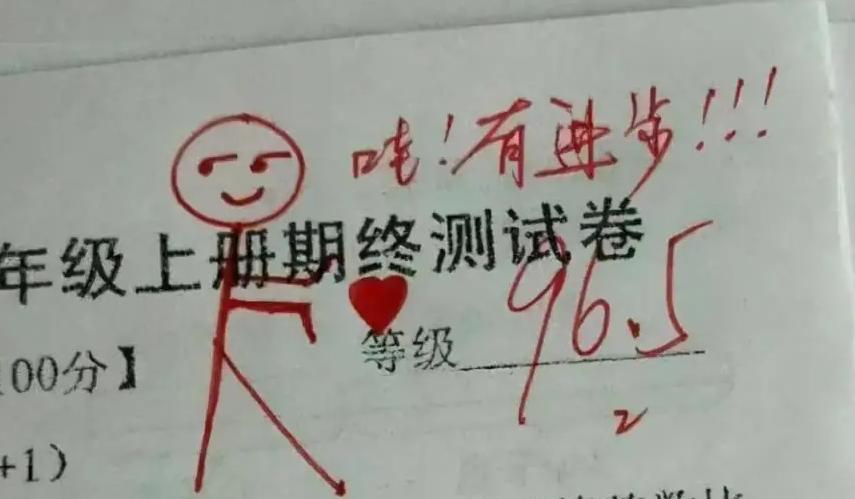 哇！有进步!!!
年级上册期终测试卷
96.5
00分】
等级
2
+1）